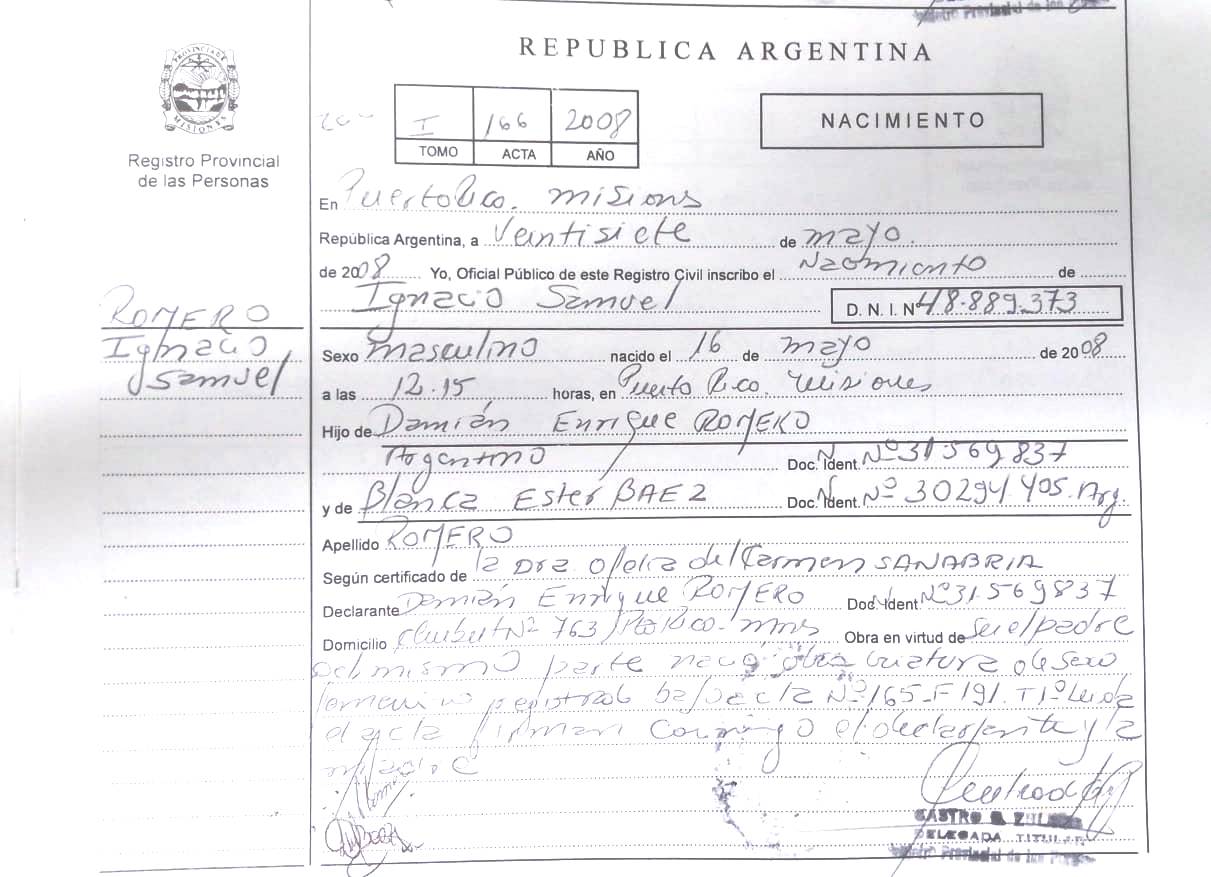 REPUBLICA ARGENTINA
PROVINCIA DE MISIONES
Registro Provincial
de las Personas
I 166 2008
TOMO ACTA AÑO
NACIMIENTO
En Puerto Rico. misions
República Argentina, a Veintisiete de mayo.
de 2008 Yo, Oficial Público de este Registro Civil inscribo el Nacimiento de
Ignacio Samuel D. N. I. Nº 48.889.373
ROMERO
Ignacio
Samuel
Sexo masculino nacido el 16 de mayo de 2008
a las 12.15 horas, en Puerto Rico. Misiones
Hijo de Damián Enrique ROMERO
Argentino Doc. Ident. Nº 31569837
y de Blanca Ester BAEZ Doc. Ident. Nº 30294405. Arg.
Apellido ROMERO
Según certificado de la Dra Ofelia del Carmen SANABRIA
Declarante Damián Enrique ROMERO Doc. Ident Nº 31.569837
Domicilio Nº 763 Obra en virtud de ser el padre
del mismo parte nació otra criatura de sexo
femenino registrado bajo acta Nº 165-F 191. Tº Leida
el acta firman conmigo el declarante y la
madre
CASTRO
DELEGADA TITULAR
Registro Provincial de las Personas